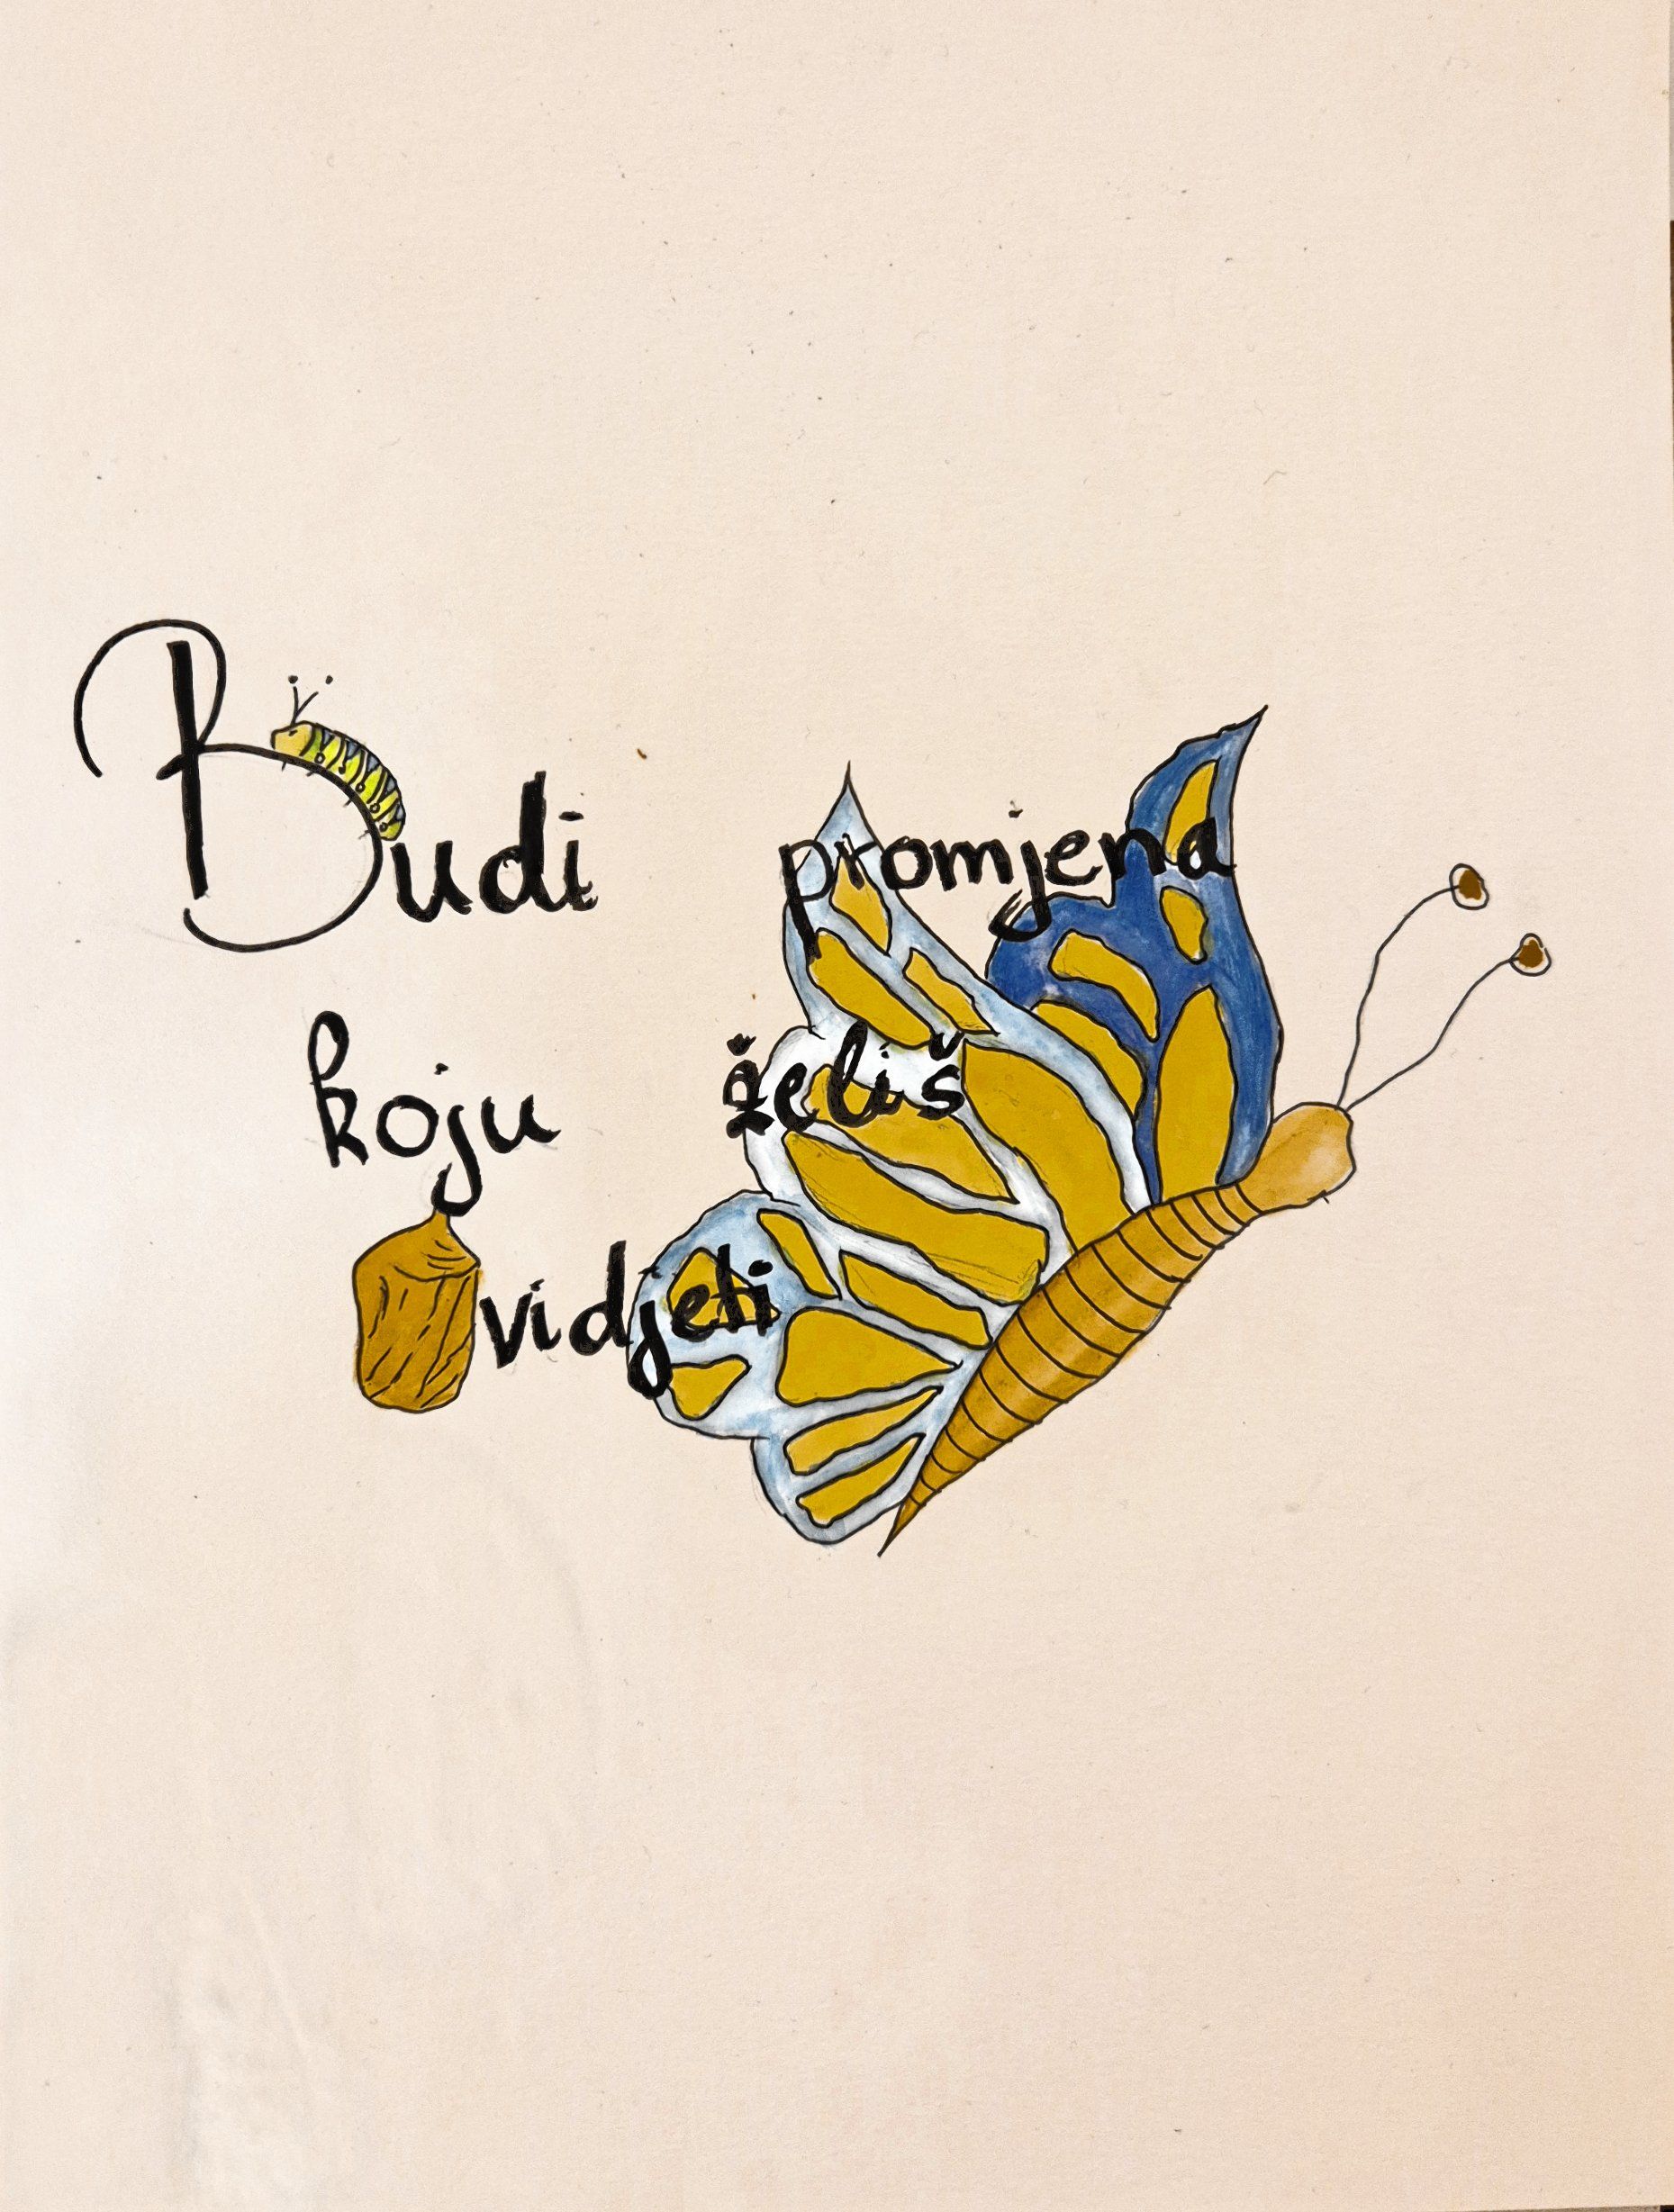 Budi promjena
koju želiš
vidjeti